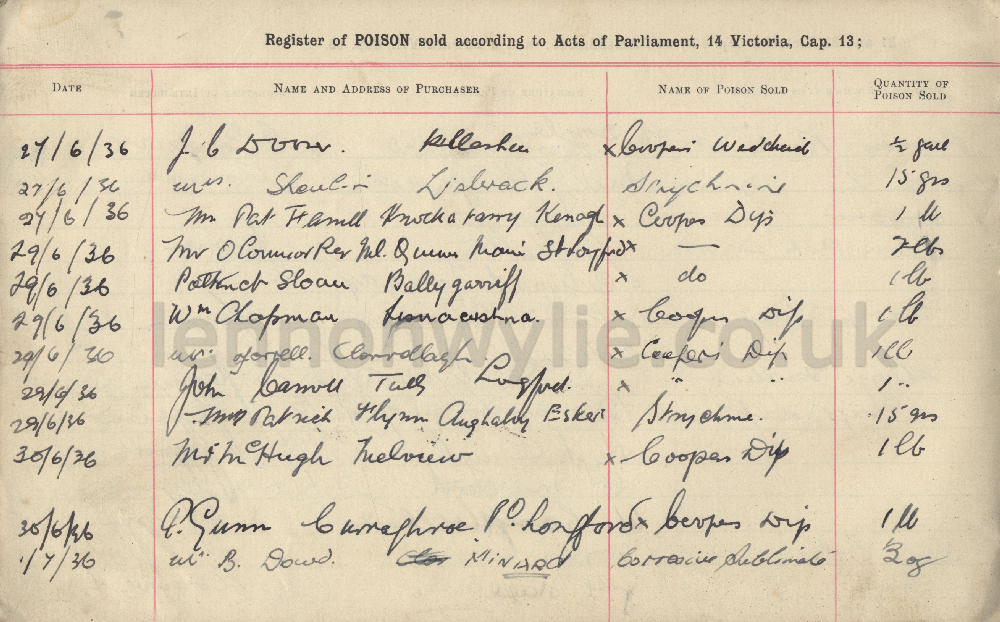 Register of POISON sold according to Acts of Parliament, 14 Victoria, Cap. 13;
DATE NAME AND ADDRESS OF PURCHASER NAME OF POISON SOLD QUANTITY OF POISON SOLD
27/6/36 J. C. Killashee x Coopers ½ gall
27/6/36 Mrs. Lisbrack. Strychnine 15 grs
27/6/36 Mr Pat Farrell Knockatarry Kenagh x Coopers Dip 1 lb
29/6/36 Mr O'Connor Per Ml. Quinn Main St Longford x — 2 lbs
29/6/36 Patrick Sloan Ballygarriff x do 1 lb
29/6/36 Wm Chapman Lisnacushna. x Coopers Dip 1 lb
29/6/36 Farrell. Clonrollagh x Coopers Dip 1 lb
29/6/36 John Carroll Tully Longford. x " " 1 "
29/6/36 Patrick Flynn Aughaboy Esker Strychnine. 15 grs
30/6/36 Mr McHugh Melview x Coopers Dip 1 lb
30/6/36 P. Gunn Curraghroe P.O. Longford x Coopers Dip 1 lb
1/7/36 B. Dowd. MINARD Corrosive Sublimate oz
lennonwylie.co.uk